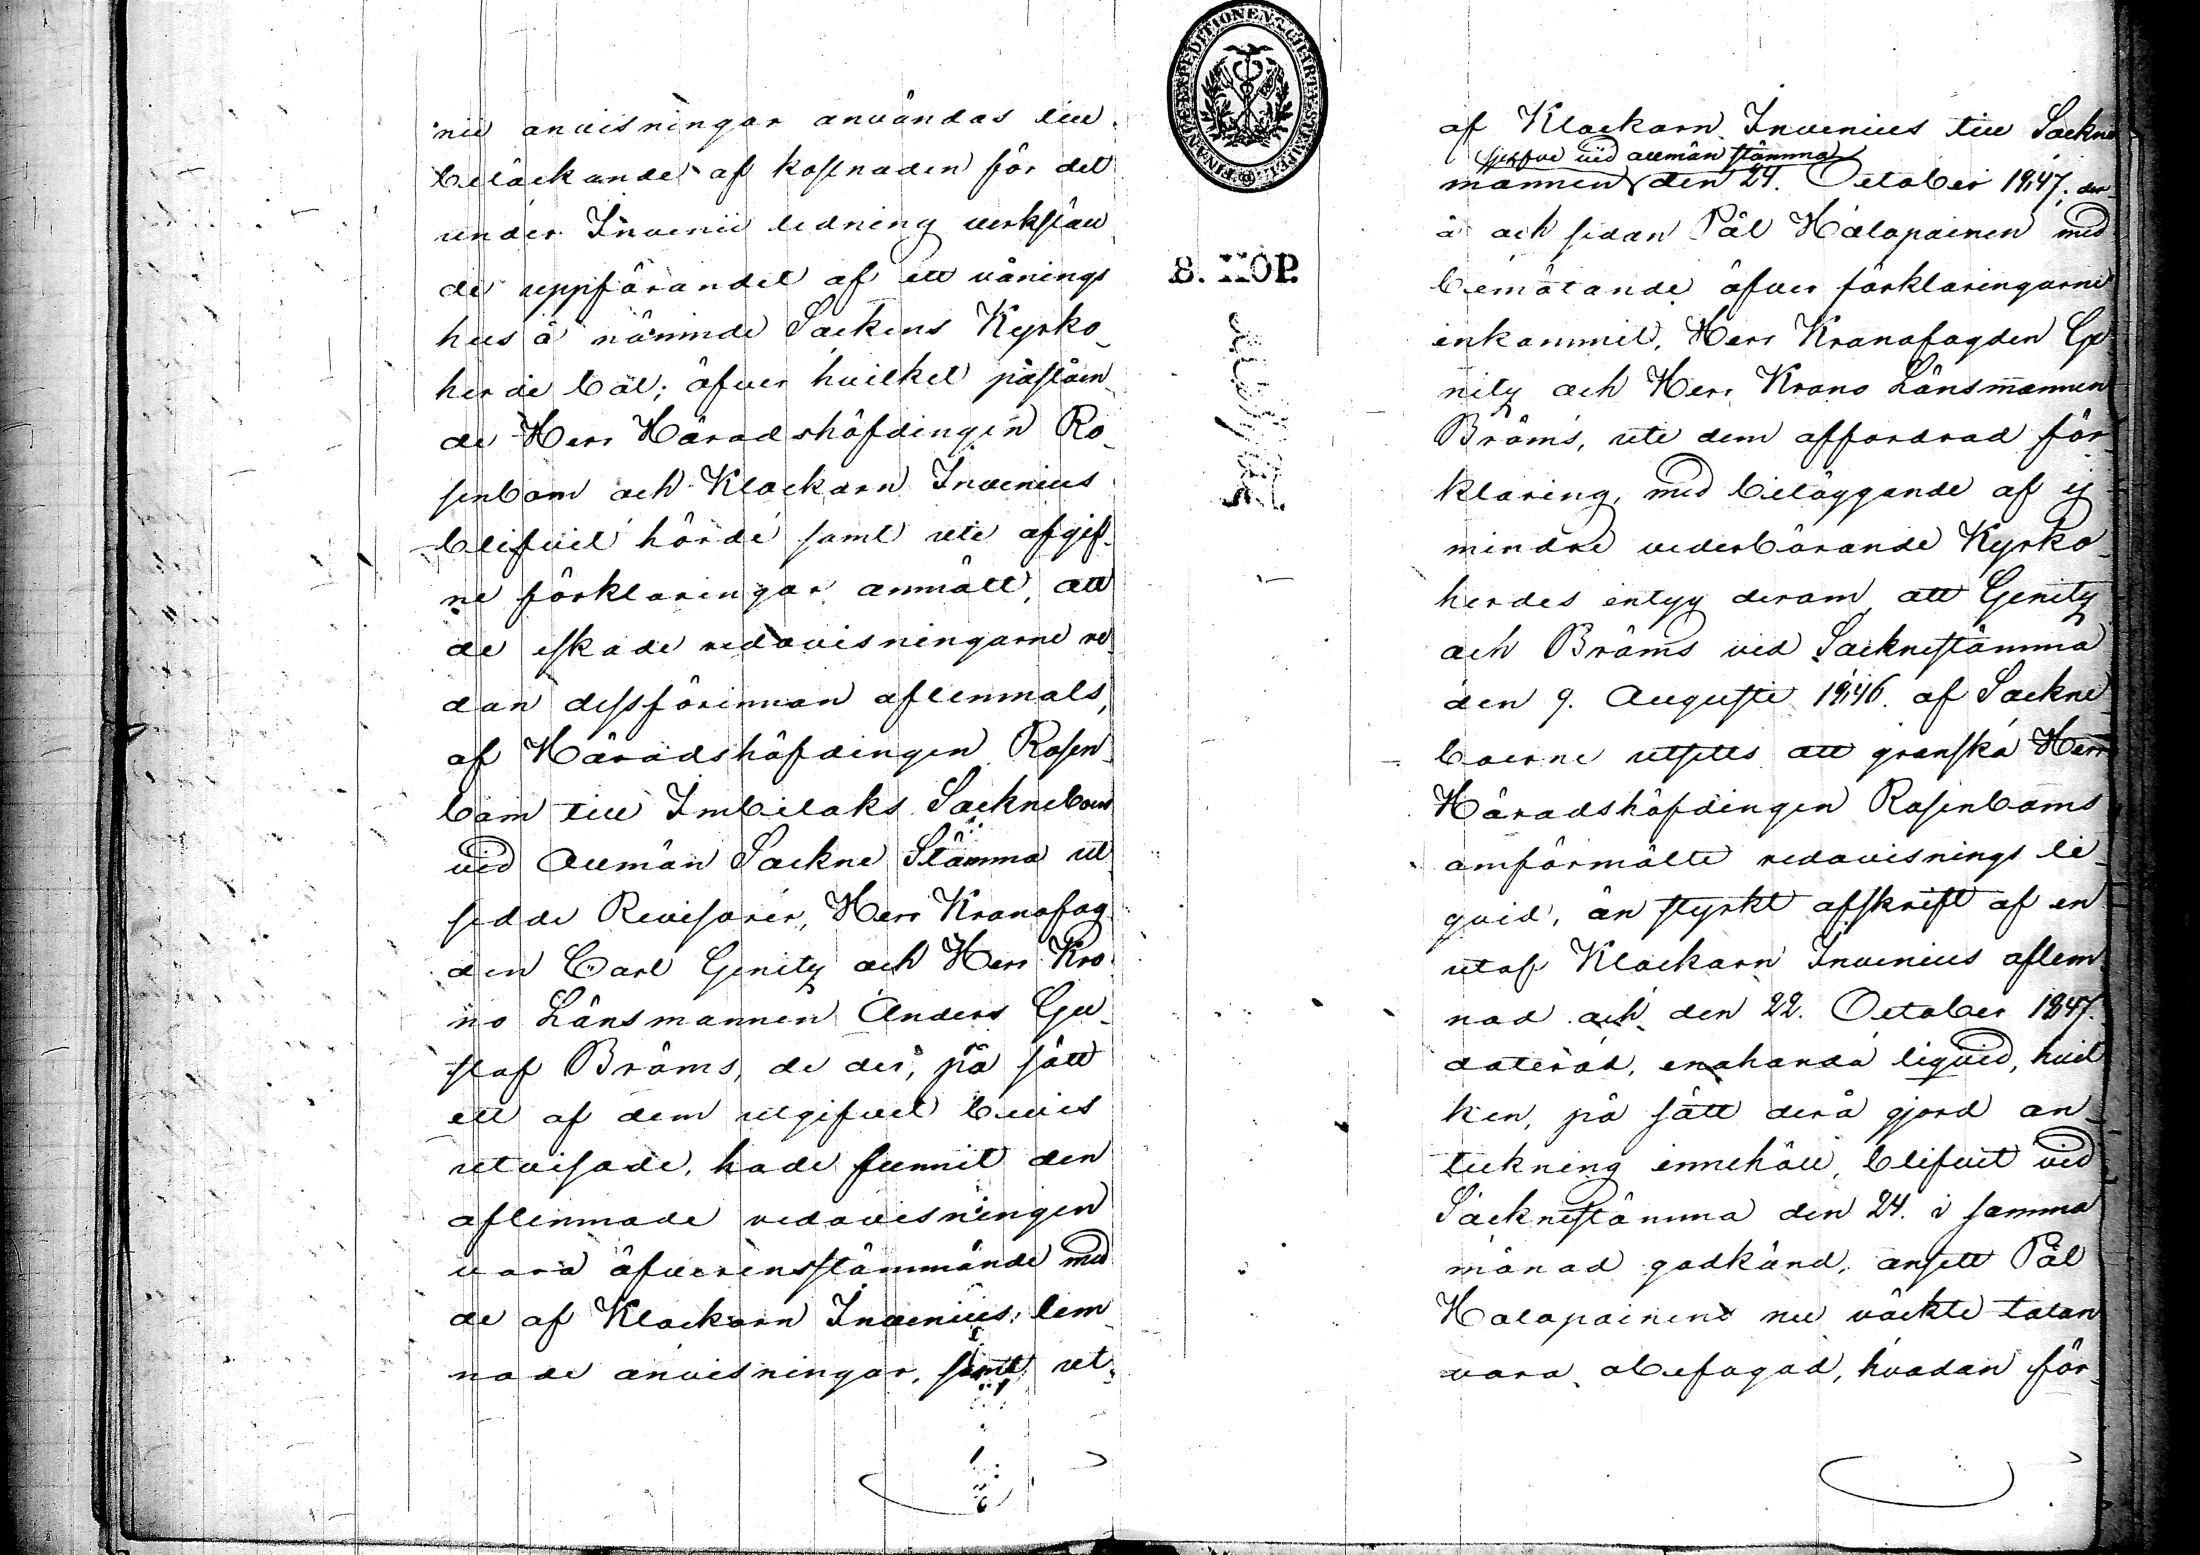 nii anvisningar användas till
betäckande af kostnaden för det
under Invenii ledning verkstäl
da uppförandet af ett vånings
hus å nämnde Sockens Kyrko-
herde bol; öfver hvilket påståen-
de Herr Häradshöfdingen Ro-
senbom och Klockarn Invenius
blifvit hörde samt uti afgif-
ne förklaringar anmält, att
de eskade redovisningarne re-
dan dessförinnan aflemnats,
af Häradshöfdingen Rosen-
bom till Imbilaks Sockneboer
vid Allmän Sockne Stämma ut-
sedde Revisorer, Herr Kronofog-
den Carl Genitz och Herr Kro-
no Länsmannen Anders Gu-
staf Bräms, de der, på sätt
ett af dem utgifvet bevis
utvisade, hade funnit den
aflemnade redovisningen
vara öfverensstämmande med
de af Klockarn Invenius lem-
nade anvisningar, samt ut-
FINANCE EXPEDITIONENS CHARTÆ STEMPEL
8. KOP.
af Klockarn Invenius till Sockne
vid allmän stämma
männen den 24. October 1847. der-
å och sedan Pål Halapainen med
bemötande öfver förklaringarne
inkommit, Herr Kronofogden Ge-
nitz och Herr Krono Länsmannen
Bräms, uti dem affordrad för-
klaring, med biläggande af ej
mindre vederbörande Kyrko-
herdes intyg derom, att Genitz
och Bräms vid Socknestämma
den 9. Augusti 1846. af Sockne
boerne utsetts att granska Herr
Häradshöfdingen Rosenboms
omförmälte redovisnings li-
quid, än styrkt afskrift af en
utaf Klockarn Invenius aflem-
nad och den 22. October 1847.
daterad, enahanda liquid, hvil-
ken, på sätt derå gjord an-
teckning innehåll, blifvit vid
Socknestämma den 24. i samma
månad godkänd, ansett Pål
Halapainens nu väckte talan
vara obefogad, hvadan för-